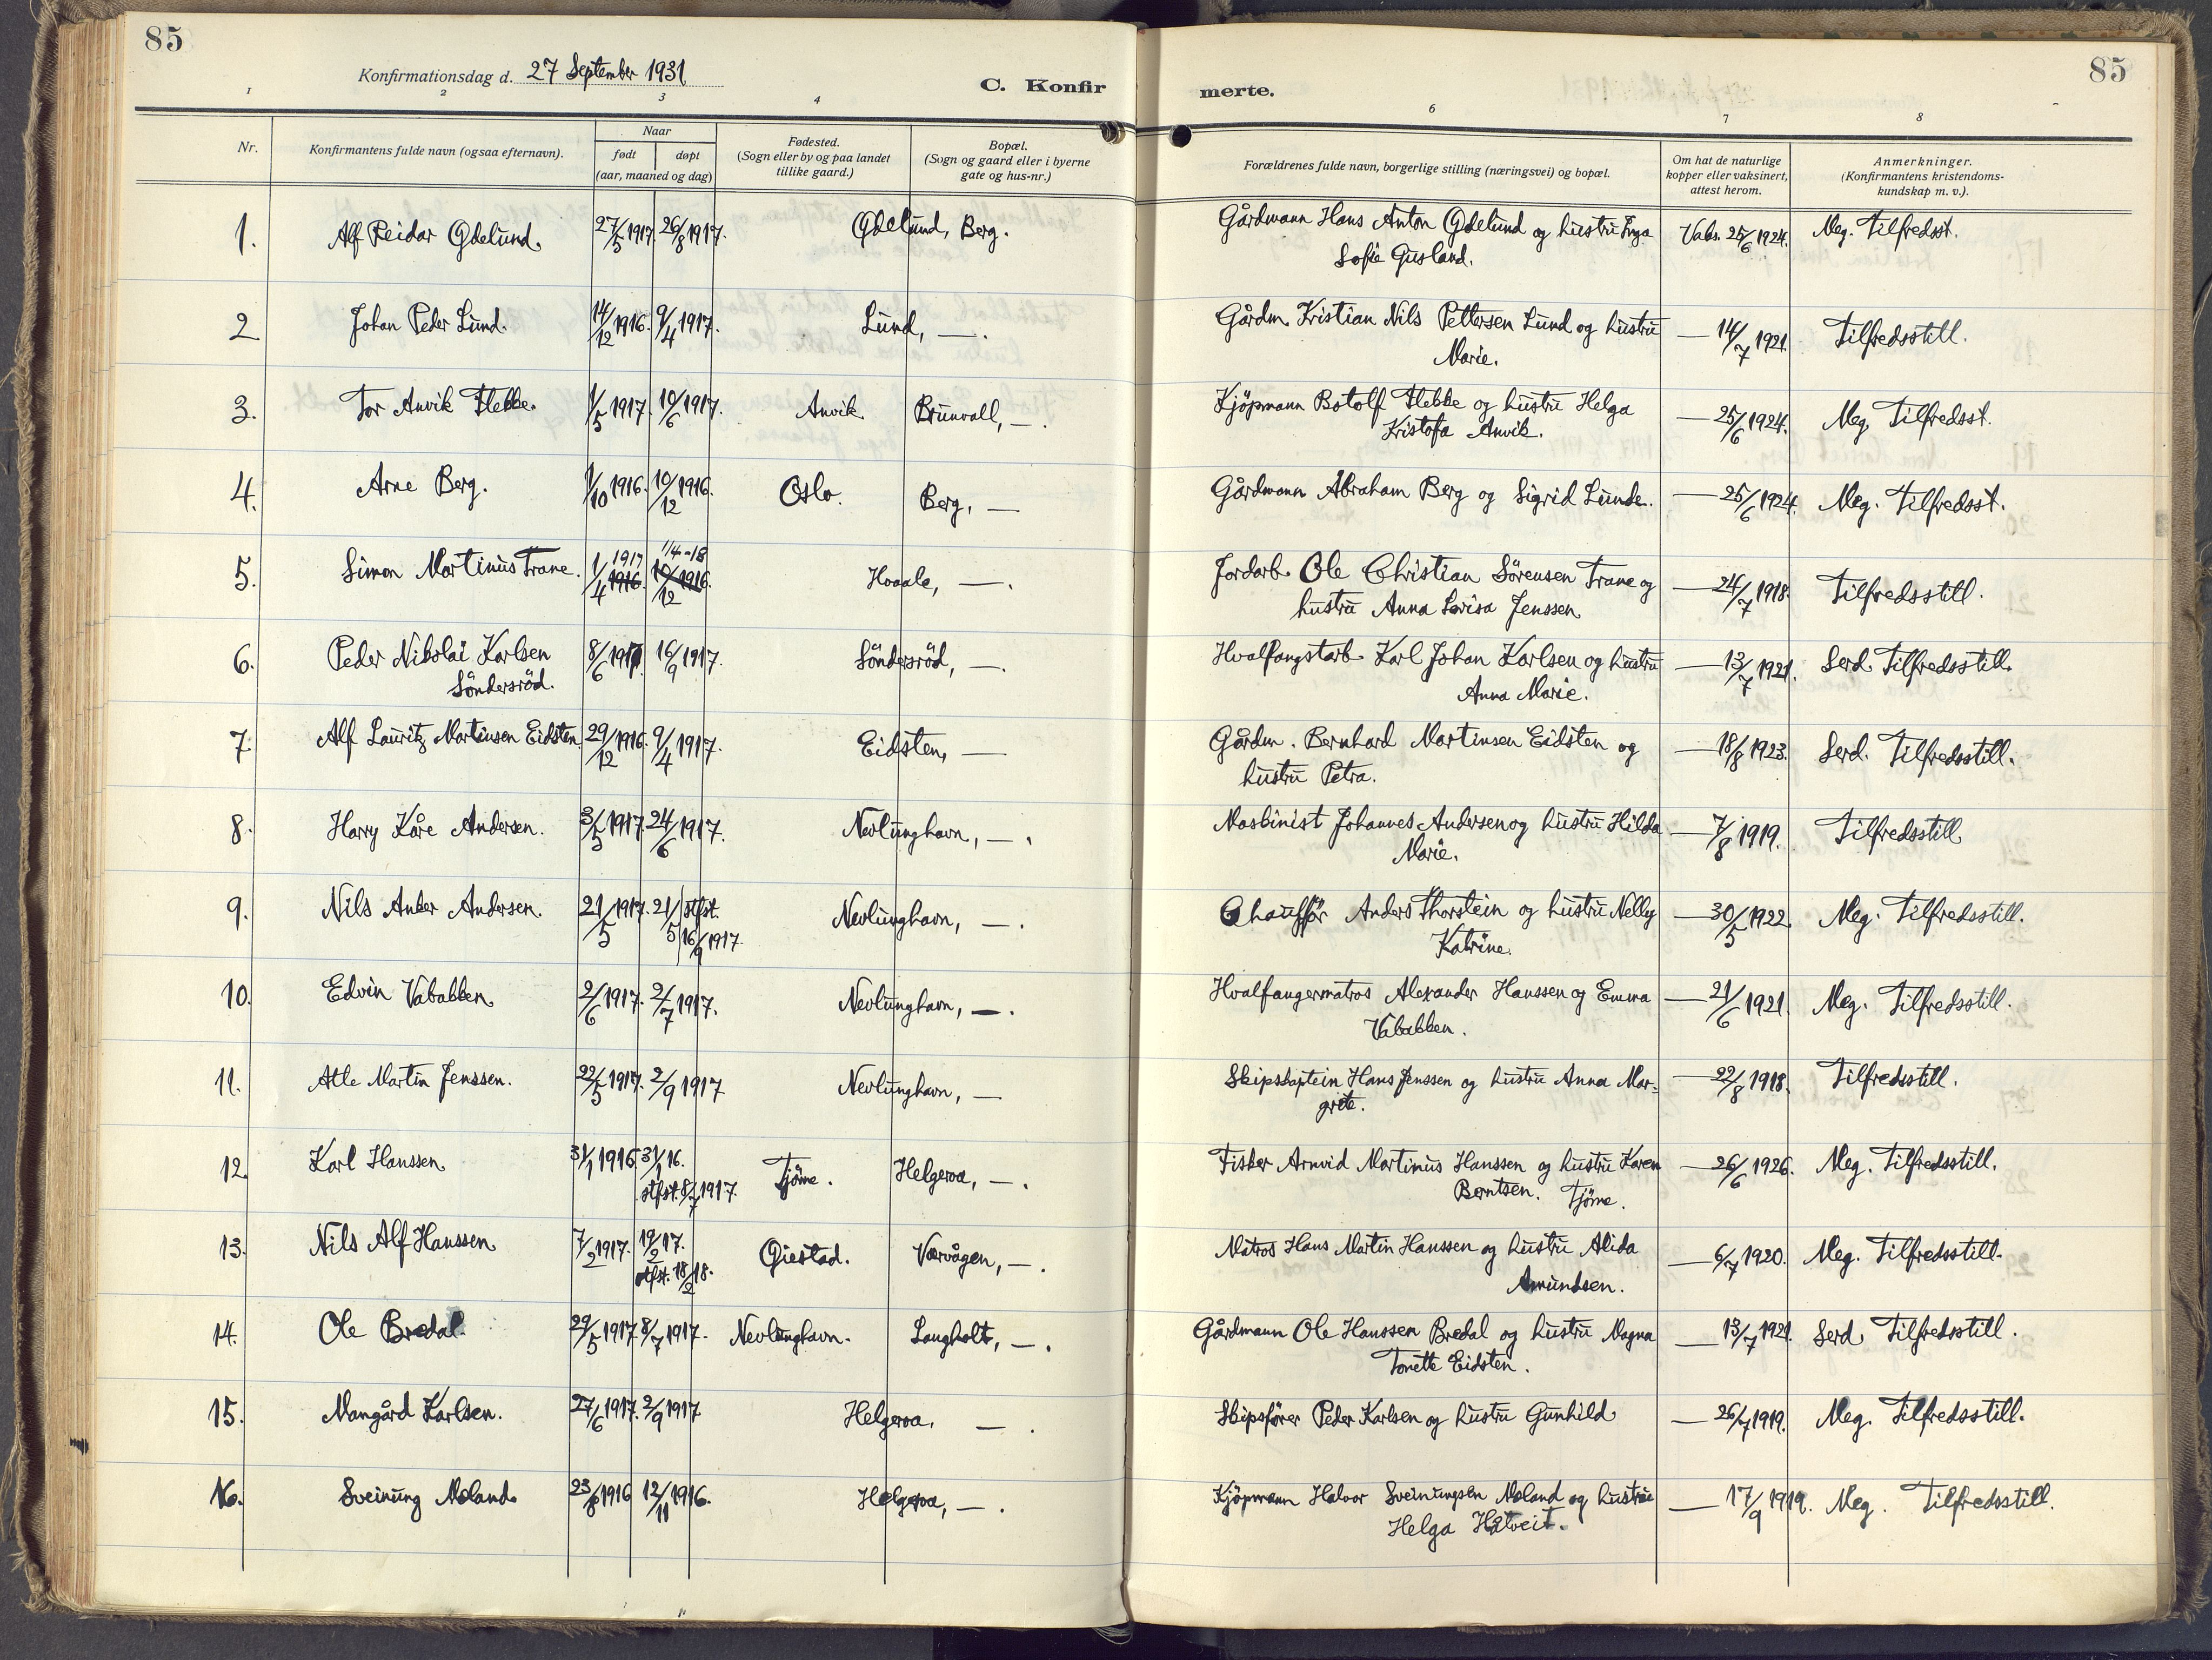 85
85
Konfirmationsdag d. 27 September 1931.
C. Konfirmerte.
1 2 3 4 6 7 8
Nr.
Konfirmantens fulde navn (ogsaa efternavn).
Naar
født
døpt
(aar, maaned og dag)
Fødested.
(Sogn eller by og paa landet
tillike gaard.)
Bopæl.
(Sogn og gaard eller i byerne
gate og hus-nr.)
Forældrenes fulde navn, borgerlige stilling (næringsvei) og bopæl.
Om hat de naturlige
kopper eller vaksinert,
attest herom.
Anmerkninger.
(Konfirmantens kristendoms-
kundskap m. v.).
1. Alf Reidar Ødelund. 27/5 1917. 26/8 1917. Ødelund, Berg. Gårdmann Hans Anton Ødelund og hustru Inga Vaks. 25/6 1924. Meg. Tilfredsst.
Sofie Gusland.
2 Johan Peder Lund. 14/12 1916. 9/4 1917. Lund, —. Gårdm. Kristian Nils Pettersen Lund og hustru — 14/7 1921. Tilfredsstill.
Marie.
3. Tor Anvik Flebbe. 1/5 1917. 10/6 1917. Anvik Brunvall, —. Kjöpmann Botolf Flebbe og hustru Helga — 25/6 1924. Meg. Tilfredsst.
Kristofa Anvik.
4. Arne Berg. 1/10 1916. 10/12 1916. Oslo. Berg, — Gårdmann Abraham Berg og Sigrid Lunde. — 25/6 1924. Meg. Tilfredsst.
5. Simon Martinus Trane. 1/4 1917 1916. 1/4-18 10/12 1916. Hvaale, —. Jordarb. Ole Christian Sörensen Trane og — 24/7 1918. Tilfredsstill.
hustru Anna Lovisa Jenssen.
6. Peder Nikolai Karlsen 8/6 1917. 16/9 1917. Söndersröd, —. Hvalfangstarb. Karl Johan Karlsen og hustru — 13/7 1921. Serd. Tilfredsstill.
Söndersröd. Anna Marie.
7. Alf Lauritz Martinsen Eidsten. 29/12 1916. 9/4 1917. Eidsten, — Gårdm. Bernhard Martinsen Eidsten og — 18/8 1923. Serd. Tilfredsstill.
hustru Petra.
8. Harry Kåre Andersen. 3/5 1917. 24/6 1917. Nevlunghavn, —. Maskinist Johannes Andersen og hustru Hilda — 7/8 1919. Tilfredsstill
Marie.
9. Nils Anker Andersen. 21/5 1917. 21/5 stfst. 16/9 1917. Nevlunghavn, —. Chauffør Anders Thorstein og hustru Nelly — 30/5 1922. Meg. Tilfredsstill.
Katrine.
10. Edvin Vabakken. 2/6 1917. 2/7 1917. Nevlunghavn, —. Hvalfangermatros Alexander Hanssen og Emma — 21/6 1921. Meg. Tilfredsstill.
Vabakken.
11. Atle Martin Jenssen. 22/5 1917. 2/9 1917 Nevlunghavn, — Skipskaptein Hans Jenssen og hustru Anna Mar- — 22/8 1918. Tilfredsstill.
grete.
12. Karl Hanssen. 31/1 1916 31/1 16. stfst. 8/7 1917. Tjöme. Helgeroa, —. Fisker Arnvid Martinus Hanssen og hustru Karen — 26/6 1926. Meg. Tilfredsstill.
Berntsen. Tjöme.
13. Nils Alf Hanssen 7/2 1917. 19/2 17. stfst. 18/2 18. Giestad. Varvågen, —. Matros Hans Martin Hanssen og hustru Alida — 6/7 1920. Meg. Tilfredsstill.
Amundsen.
14. Ole Bredal. 29/5 1917 8/7 1917. Nevlunghavn. Langholt, —. Gårdmann Ole Hanssen Bredal og hustru Magna — 13/7 1921. Serd. Tilfredsstill.
Tonette Eidsten.
15. Mangård Karlsen. 27/6 1917. 2/9 1917 Helgeroa, —. Skipsfører Peder Karlsen og hustru Gunhild — 26/7 1919. Meg. Tilfredsstill.
16. Sveinung Moland. 23/8 1916 12/11 1916. Helgeroa, —. Kjöpmann Halvor Sveinungsen Moland og hustru — 17/9 1919. Meg. Tilfredsstill.
Helga Hatveit.